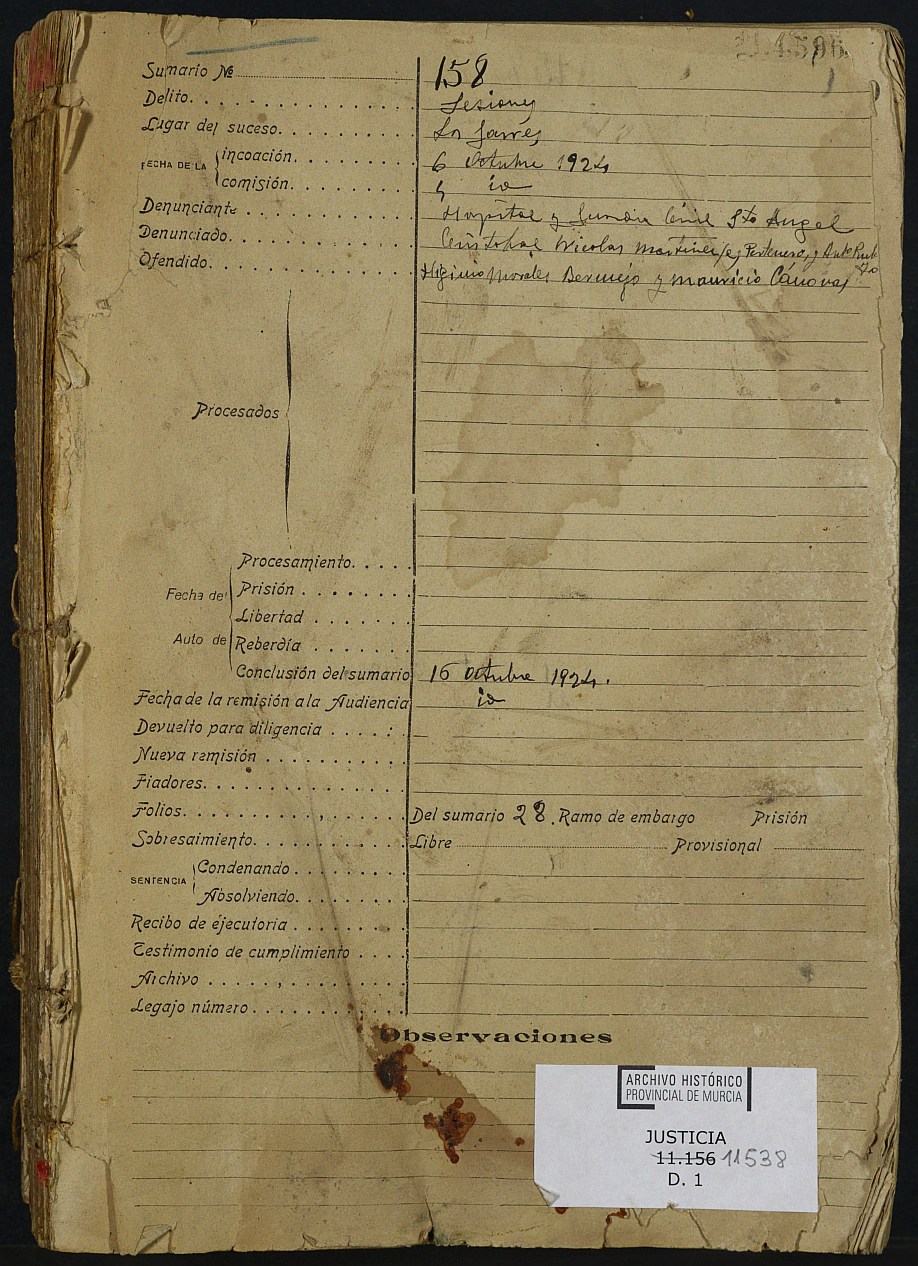 Sumario Nº 158
Delito. Lesiones
Lugar del suceso. Los Garres
FECHA DE LA
incoación. 6 Octubre 1924
comisión. 5 id
Denunciante Hospital y Guardia Civil Sto Angel
Denunciado. Cristobal Nicolas Martinez y Ant
Ofendido. Higinio Morales Bermejo y Mauricio Cánovas
Procesados
Fecha del
Auto de
Procesamiento.
Prisión
Libertad
Reberdía
Conclusión del sumario 16 Octubre 1924.
Fecha de la remisión a la Audiencia id
Devuelto para diligencia
Nueva remisión
Fiadores.
Folios. Del sumario 28. Ramo de embargo Prisión
Sobresaimiento. Libre Provisional
SENTENCIA
Condenando
Absolviendo.
Recibo de éjecutoria
Testimonio de cumplimiento
Archivo
Legajo número
Observaciones
ARCHIVO HISTÓRICO
PROVINCIAL DE MURCIA
JUSTICIA
11.156 11538
D. 1